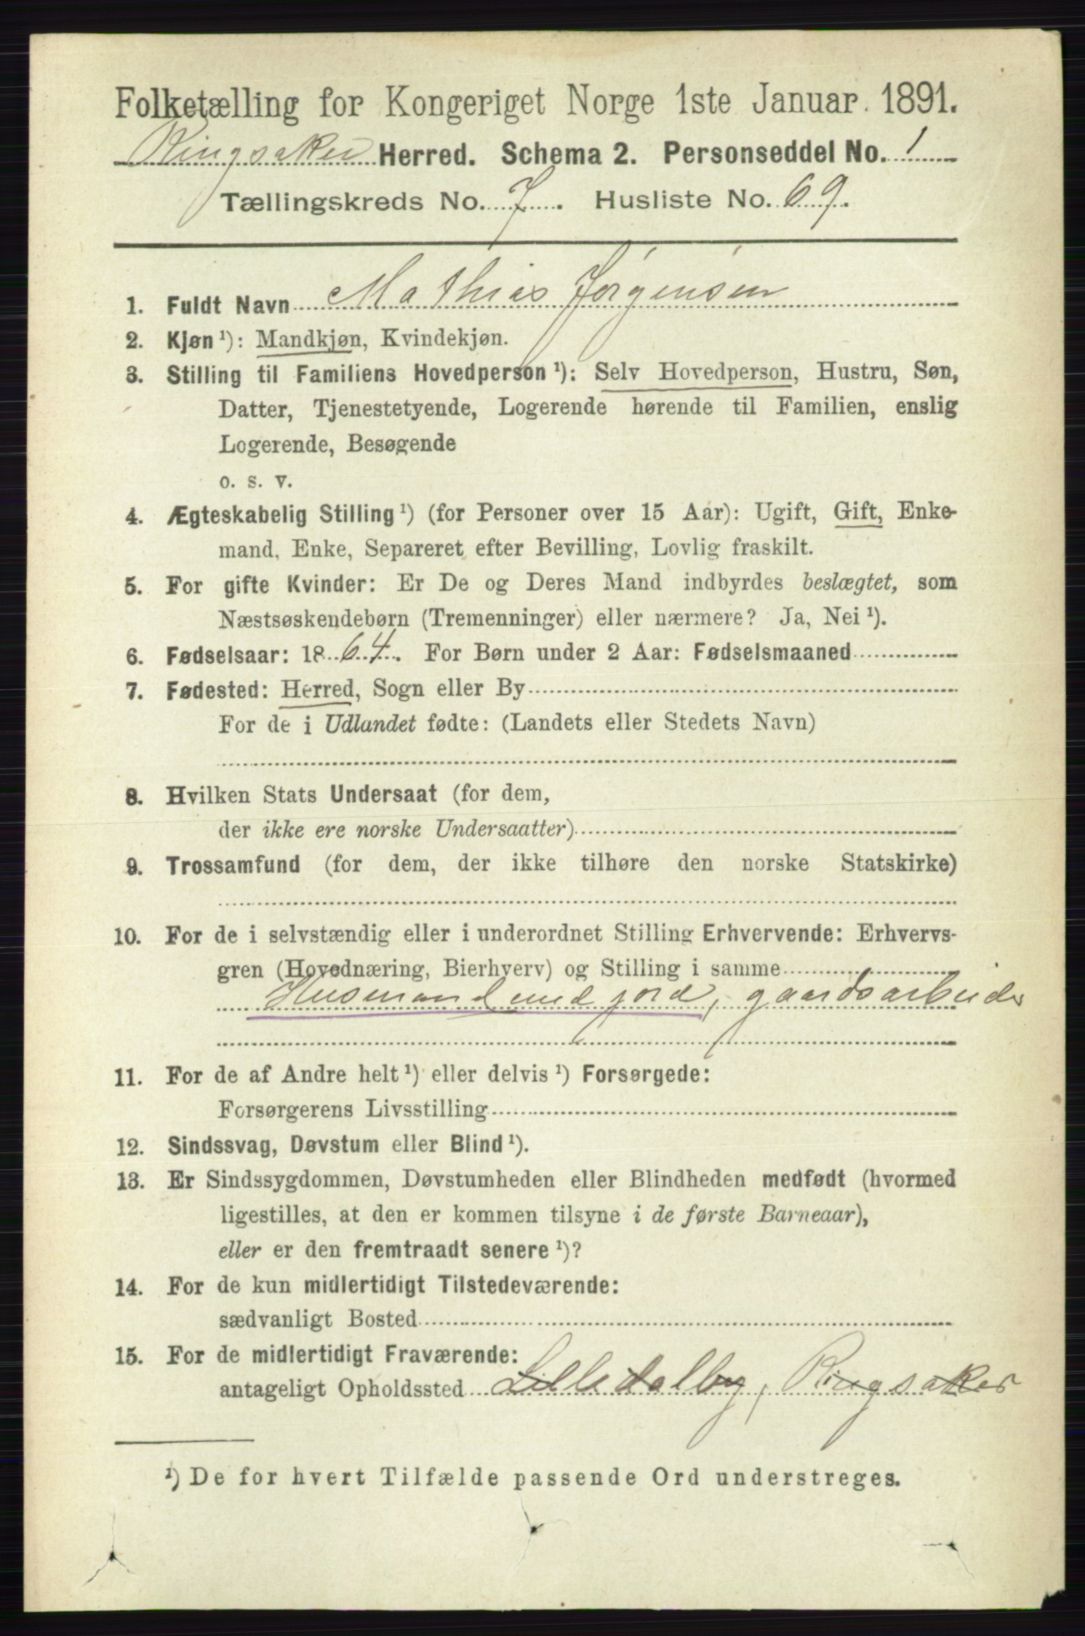 Folketælling for Kongeriget Norge 1ste Januar 1891.
Ringsaker Herred. Schema 2. Personseddel No. 1
Tællingskreds No. 7. Husliste No. 69.
1. Fuldt Navn Mathias Jørgensen
2. Kjøn ¹): Mandkjøn, Kvindekjøn.
3. Stilling til Familiens Hovedperson ¹): Selv Hovedperson, Hustru, Søn,
Datter, Tjenestetyende, Logerende hørende til Familien, enslig
Logerende, Besøgende
o. s. v.
4. Ægteskabelig Stilling ¹) (for Personer over 15 Aar): Ugift, Gift, Enke-
mand, Enke, Separeret efter Bevilling, Lovlig fraskilt.
5. For gifte Kvinder: Er De og Deres Mand indbyrdes beslægtet, som
Næstsøskendebørn (Tremenninger) eller nærmere? Ja, Nei ¹).
6. Fødselsaar: 1864. For Børn under 2 Aar: Fødselsmaaned
7. Fødested: Herred, Sogn eller By
For de i Udlandet fødte: (Landets eller Stedets Navn)
8. Hvilken Stats Undersaat (for dem,
der ikke ere norske Undersaatter)
9. Trossamfund (for dem, der ikke tilhøre den norske Statskirke)
10. For de i selvstændig eller i underordnet Stilling Erhvervende: Erhvervs-
gren (Hovednæring, Bierhverv) og Stilling i samme
Husmand med jord, gaardsarbeider
11. For de af Andre helt ¹) eller delvis ¹) Forsørgede:
Forsørgerens Livsstilling
12. Sindssvag, Døvstum eller Blind ¹).
13. Er Sindssygdommen, Døvstumheden eller Blindheden medfødt (hvormed
ligestilles, at den er kommen tilsyne i de første Barneaar),
eller er den fremtraadt senere ¹)?
14. For de kun midlertidigt Tilstedeværende:
sædvanligt Bosted
15. For de midlertidigt Fraværende:
antageligt Opholdssted Lille dalby, Ringsaker
¹) De for hvert Tilfælde passende Ord understreges.